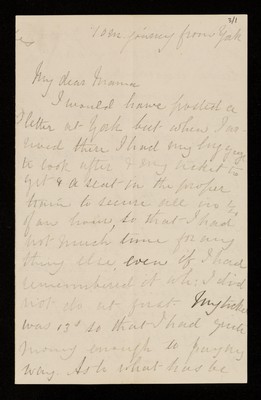 2/1
journey from York
My dear Mama
I would have posted a
letter at York but when I ar-
rived there I had my luggage
to look after & my ticket to
get & a seat in the proper
train to secure all in ½
of an hour, so that I had
not much time for any
thing else, even if I had
remembered it wh: I did
not do at first My ticket
was 13s so that I had quite
money enough to pay my
way. As to what has be